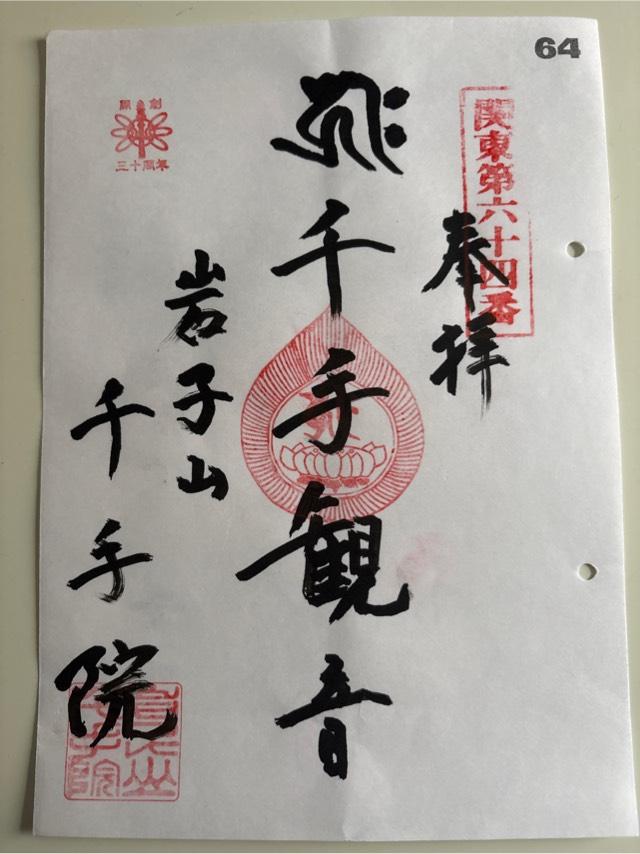 64
関東第六十四番
奉拝
千手観音
岩子山
千手院
開創
三十周年